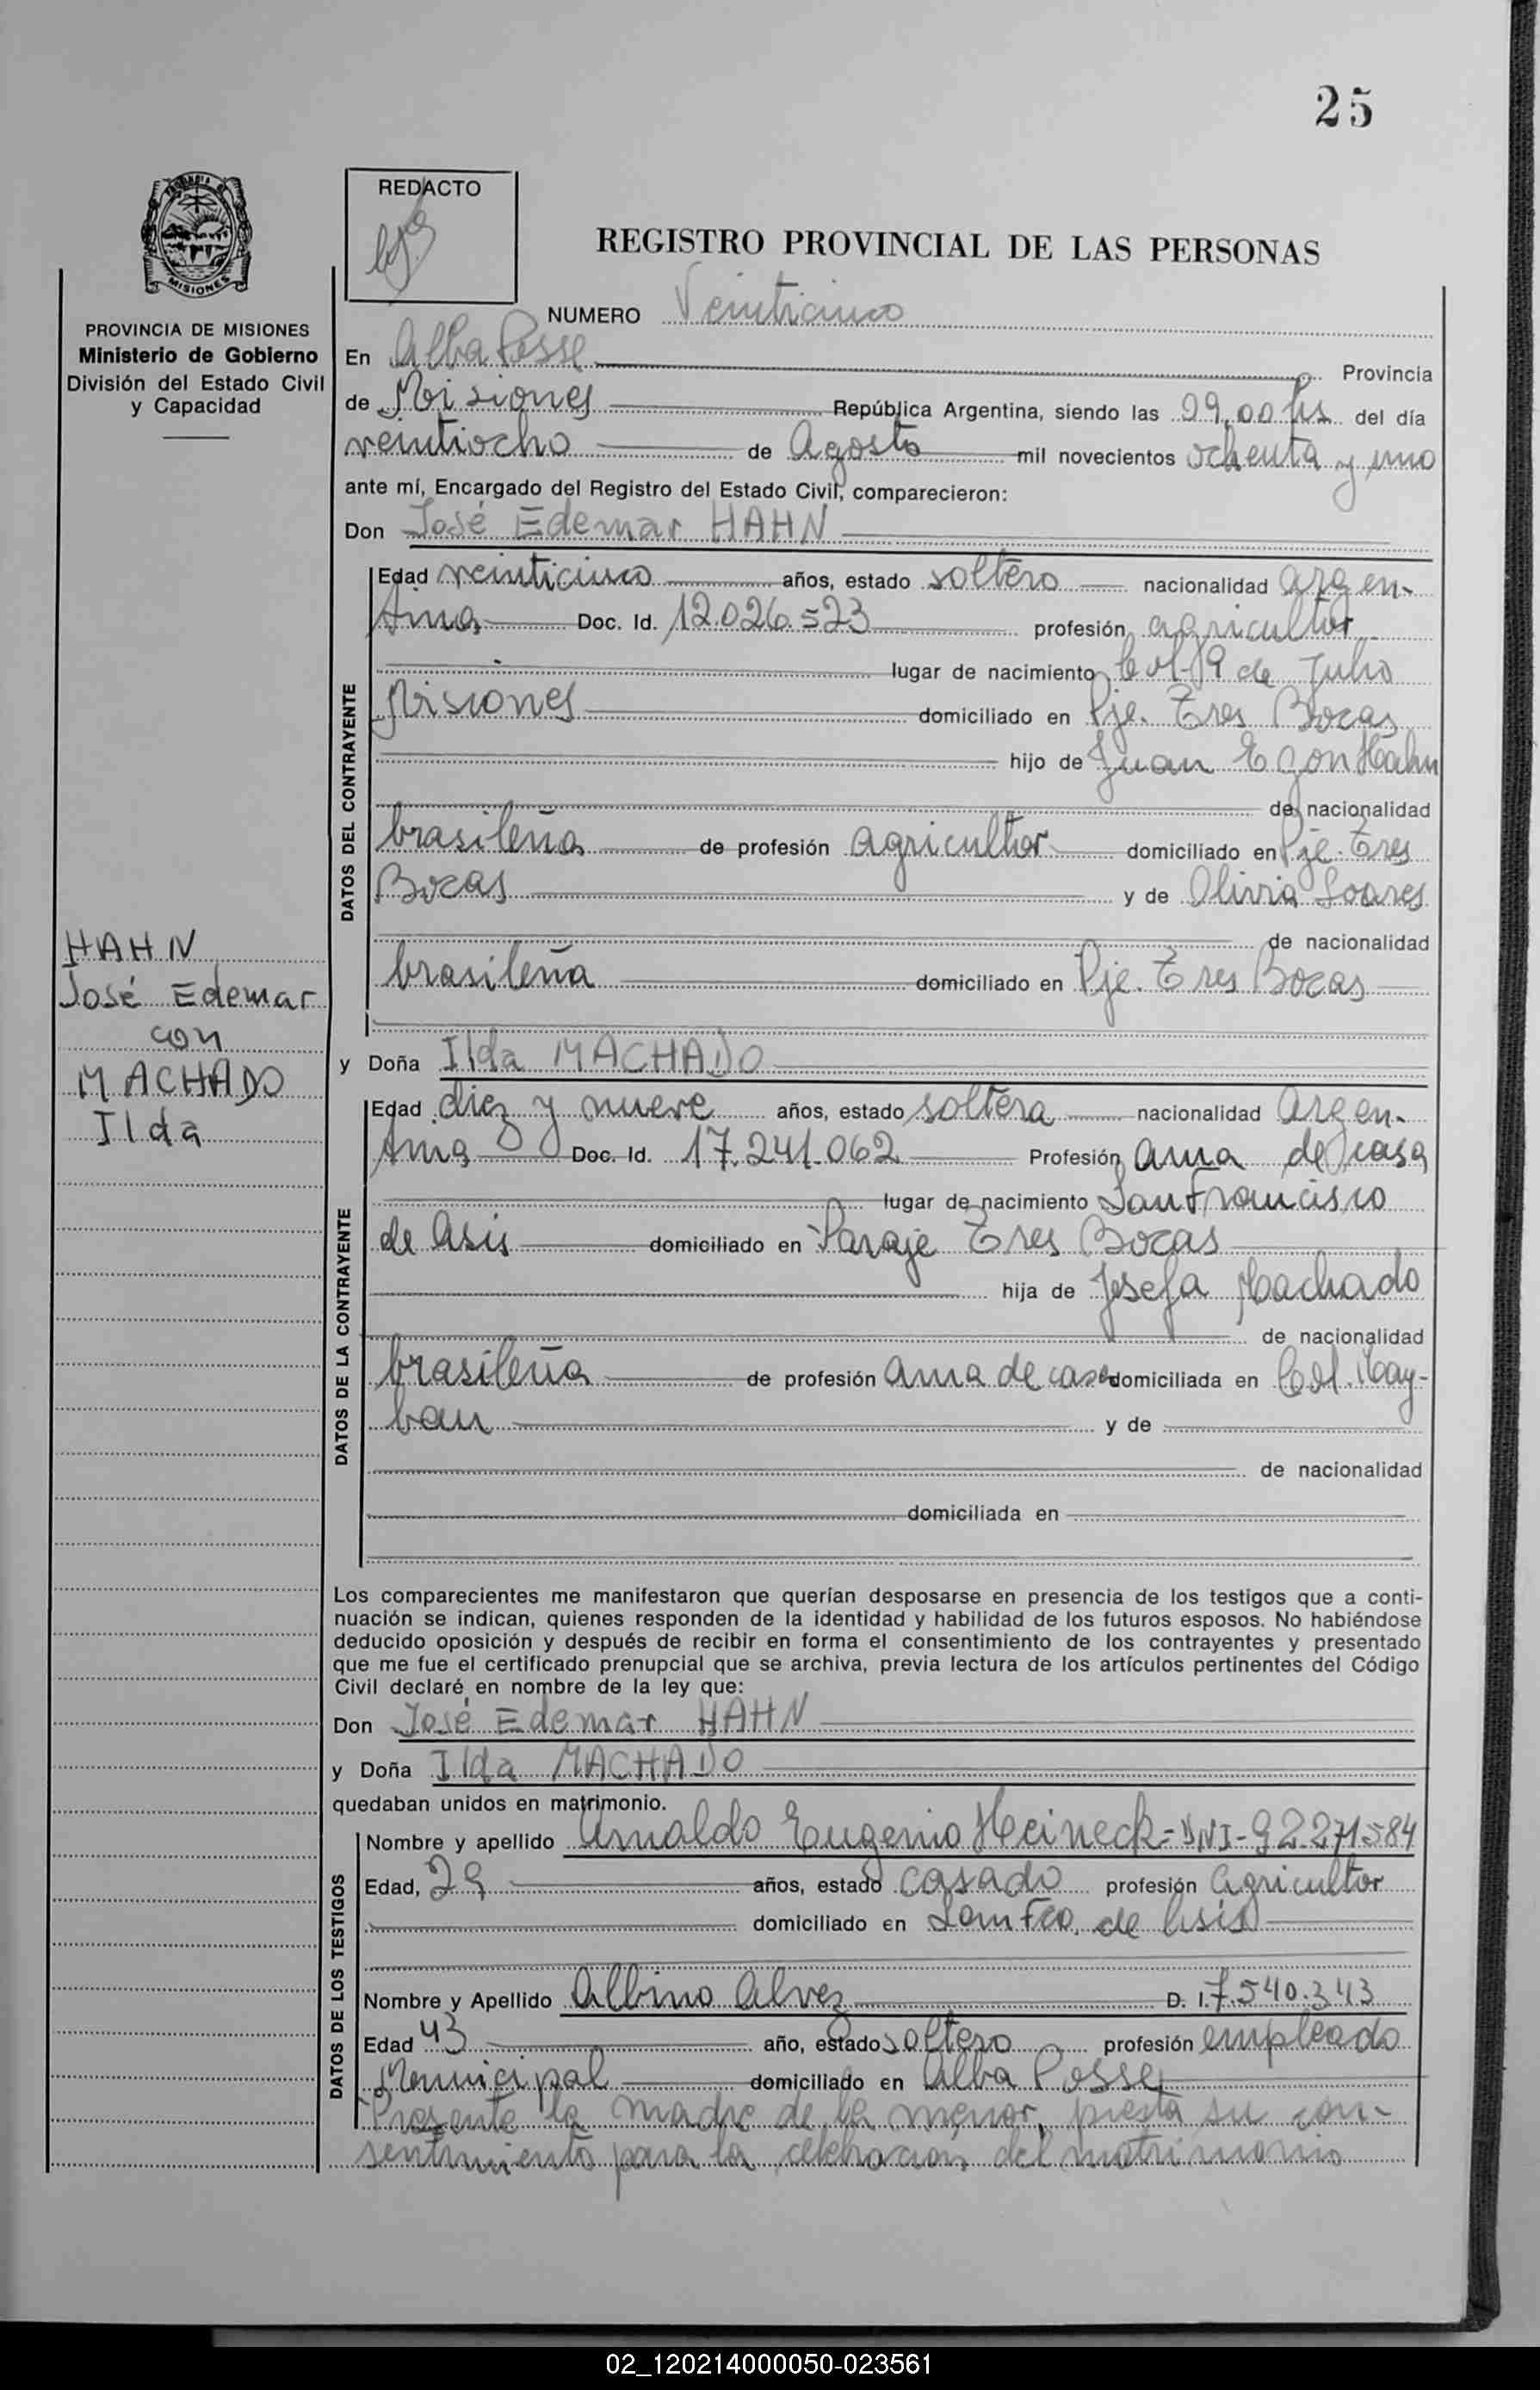 25
REDACTO
REGISTRO PROVINCIAL DE LAS PERSONAS
MISIONES
PROVINCIA DE MISIONES
Ministerio de Gobierno
División del Estado Civil
y Capacidad
HAHN
José Edemar
con
MACHADO
Ilda
NUMERO Veinticinco
En Alba Posse Provincia
de Misiones República Argentina, siendo las 09,00 hs del día
veintiocho de Agosto mil novecientos ochenta y uno
ante mí, Encargado del Registro del Estado Civil, comparecieron:
Don José Edemar HAHN
DATOS DEL CONTRAYENTE
Edad veinticinco años, estado soltero nacionalidad argen-
tina Doc. Id. 12.026.523 profesión agricultor
lugar de nacimiento Col. 9 de Julio
Misiones domiciliado en Pje. Tres Bocas
hijo de Juan Egon Hahn
de nacionalidad
brasileña de profesión agricultor domiciliado en Pje. Tres
Bocas y de Olivia Soares
de nacionalidad
brasileña domiciliado en Pje. Tres Bocas
y Doña Ilda MACHADO
DATOS DE LA CONTRAYENTE
Edad diez y nueve años, estado soltera nacionalidad argen-
tina Doc. Id. 17.241.062 Profesión ama de casa
lugar de nacimiento San Francisco
de Asis domiciliado en Paraje Tres Bocas
hija de Josefa Machado
de nacionalidad
brasileña de profesión ama de casa domiciliada en Col.
y de
de nacionalidad
domiciliada en
Los comparecientes me manifestaron que querían desposarse en presencia de los testigos que a conti-
nuación se indican, quienes responden de la identidad y habilidad de los futuros esposos. No habiéndose
deducido oposición y después de recibir en forma el consentimiento de los contrayentes y presentado
que me fue el certificado prenupcial que se archiva, previa lectura de los artículos pertinentes del Código
Civil declaré en nombre de la ley que:
Don José Edemar HAHN
y Doña Ilda MACHADO
quedaban unidos en matrimonio.
DATOS DE LOS TESTIGOS
Nombre y apellido Arnaldo Eugenio Heineck-DNI-92.271584
Edad, 29 años, estado casado profesión agricultor
domiciliado en San Fco. de Asis
Nombre y Apellido Albino Alvez D. I. 7.540.343
Edad 43 año, estado soltero profesión empleado
Municipal domiciliado en Alba Posse
Presente la madre de la menor, presta su con-
sentimiento para la celebración del matrimonio
02_120214000050-023561